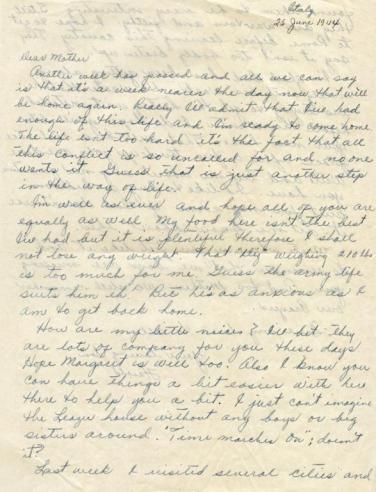 Italy
25 June 1944
Dear Mother
Another week has passed and all we can say
is that it's a week nearer the day now that will
be home again. Really I'll admit that I've had
enough of this life and I'm ready to come home
The life isn't too hard it's the fact that all
this conflict is so uncalled for and no one
wants it. Guess that is just another step
in the way of life.
I'm well as ever and hope all of you are
equally as well. My food here isn't the best
I've had but it is plentiful therefore I shall
not lose any weight. That weighing 210 lbs
is too much for me. Guess the army life
suits him eh. But he's as anxious as I
am to get back home.
How are my little nieces? I'll bet they
are lots of company for you these days
Hope Margaret is well too. Also I know you
can have things a bit easier with her
there to help you a bit. I just can't imagine
the house without any boys or big
sisters around. "Time marches On"; doesn't
it?
Last week I visited several cities and